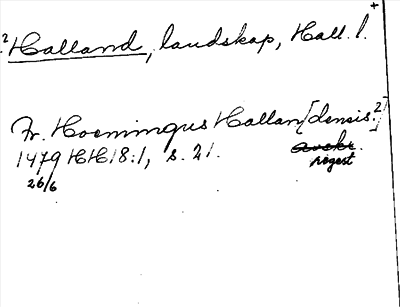 +
? Halland, landskap, Hall. l.
Fr. Hoemingus Hallan[densis?]
1479 HH 18:1, s. 21. avskr.
26/6 regest